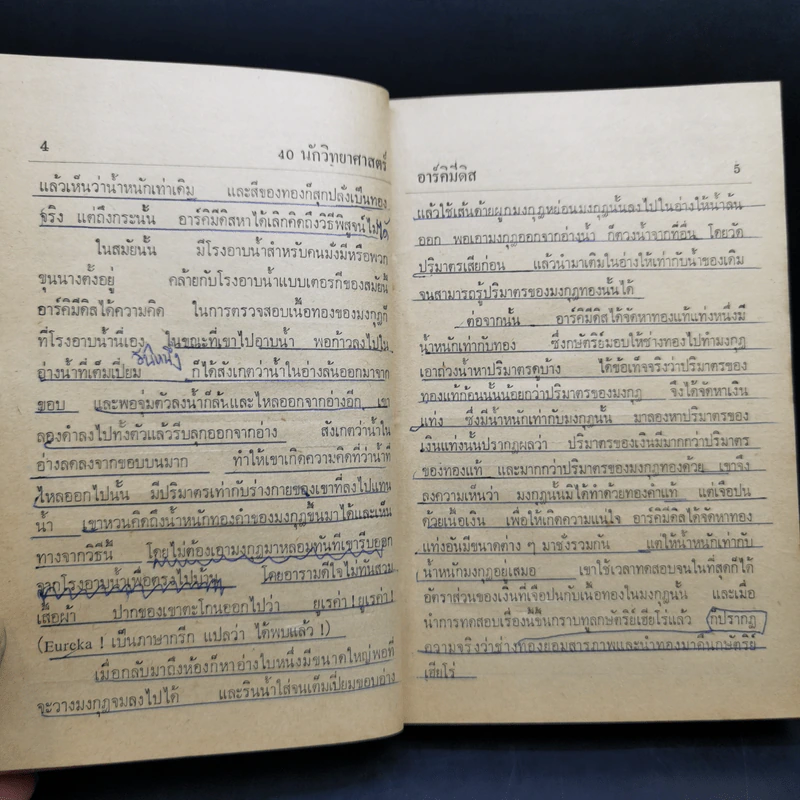 4
40 นักวิทยาศาสตร์
แล้วเห็นว่าน้ำหนักเท่าเดิม และสีของทองก็สุกปลั่งเป็นทอง
จริง แต่ถึงกระนั้น อาร์คิมีดิสหาได้เลิกคิดถึงวิธีพิสูจน์ไม่ได้
ในสมัยนั้น มีโรงอาบน้ำสำหรับคนมั่งมีหรือพวก
ขุนนางตั้งอยู่ คล้ายกับโรงอาบน้ำแบบเตอรกีของสมัยนี้
อาร์คิมีดิสได้ความคิด ในการตรวจสอบเนื้อทองของมงกุฎก็
ที่โรงอาบน้ำนี่เอง ในขณะที่เขาไปอาบน้ำ พอก้าวลงไปใน
วันหนึ่ง
อ่างน้ำที่เต็มเปี่ยม ก็ได้สังเกตว่าน้ำในอ่างล้นออกมาจาก
ขอบ และพอจุ่มตัวลงน้ำก็ล้นและไหลออกจากอ่างอีก เขา
ลองดำลงไปทั้งตัวแล้วรีบลุกออกจากอ่าง สังเกตว่าน้ำใน
อ่างลดลงจากขอบบนมาก ทำให้เขาเกิดความคิดที่ว่าน้ำที่
ไหลออกไปนั้น มีปริมาตรเท่ากับร่างกายของเขาที่ลงไปแทน
น้ำ เขาหวนคิดถึงน้ำหนักทองคำของมงกุฎขึ้นมาได้และเห็น
ทางจากวิธีนี้ โดยไม่ต้องเอามงกุฎมาหลอมทันทีเขารีบออก
จากโรงอาบน้ำเพื่อตรงไปบ้าน โดยอารามดีใจไม่ทันสวม
เสื้อผ้า ปากของเขาตะโกนออกไปว่า ยูเรค่า ! ยูเรค่า !
(Eureka ! เป็นภาษากรีก แปลว่า ได้พบแล้ว !)
เมื่อกลับมาถึงห้องก็หาอ่างใบหนึ่งมีขนาดใหญ่พอที่
จะวางมงกุฎจมลงไปได้ และรินน้ำใส่จนเต็มเปี่ยมขอบอ่าง
อาร์คิมีดิส
5
แล้วใช้เส้นด้ายผูกมงกุฎหย่อนมงกุฎนั้นลงไปในอ่างให้น้ำล้น
ออก พอเอามงกุฎออกจากอ่างน้ำ ก็ตวงน้ำจากที่อื่น โดยวัด
ปริมาตรเสียก่อน แล้วนำมาเติมในอ่างให้เท่ากับน้ำของเดิม
จนสามารถรู้ปริมาตรของมงกุฎทองนั้นได้
ต่อจากนั้น อาร์คิมีดิสได้จัดหาทองแท้แท่งหนึ่งมี
น้ำหนักเท่ากับทอง ซึ่งกษัตริย์มอบให้ช่างทองไปทำมงกุฎ
เอาถ่วงน้ำหาปริมาตรดูบ้าง ได้ข้อเท็จจริงว่าปริมาตรของ
ทองแท้ก้อนนั้นน้อยกว่าปริมาตรของมงกุฎ จึงได้จัดหาเงิน
แท่ง ซึ่งมีน้ำหนักเท่ากับมงกุฎนั้น มาลองหาปริมาตรของ
เงินแท่งนั้นปรากฏผลว่า ปริมาตรของเงินมีมากกว่าปริมาตร
ของทองแท้ และมากกว่าปริมาตรของมงกุฎทองด้วย เขาจึง
ลงความเห็นว่า มงกุฎนั้นมิได้ทำด้วยทองคำแท้ แต่เจือปน
ด้วยเนื้อเงิน เพื่อให้เกิดความแน่ใจ อาร์คิมีดิสได้จัดหาทอง
แท่งอันมีขนาดต่าง ๆ มาชั่งรวมกัน แต่ให้น้ำหนักเท่ากับ
น้ำหนักมงกุฎอยู่เสมอ เขาใช้เวลาทดสอบจนในที่สุดก็ได้
อัตราส่วนของเงินที่เจือปนกับเนื้อทองในมงกุฎนั้น และเมื่อ
นำการทดสอบเรื่องนี้ขึ้นกราบทูลกษัตริย์เฮียโร่แล้ว ก็ปรากฏ
ความจริงว่าช่างทองยอมสารภาพและนำทองมาคืนกษัตริย์
เฮียโร่